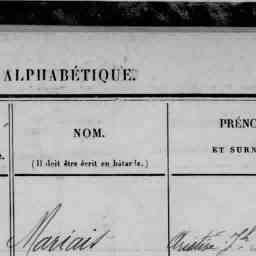 ALPHABÉTIQUE.
NOM.
(Il doit être écrit en bâtarde.)
PRÉNO
ET SURN
Mariais